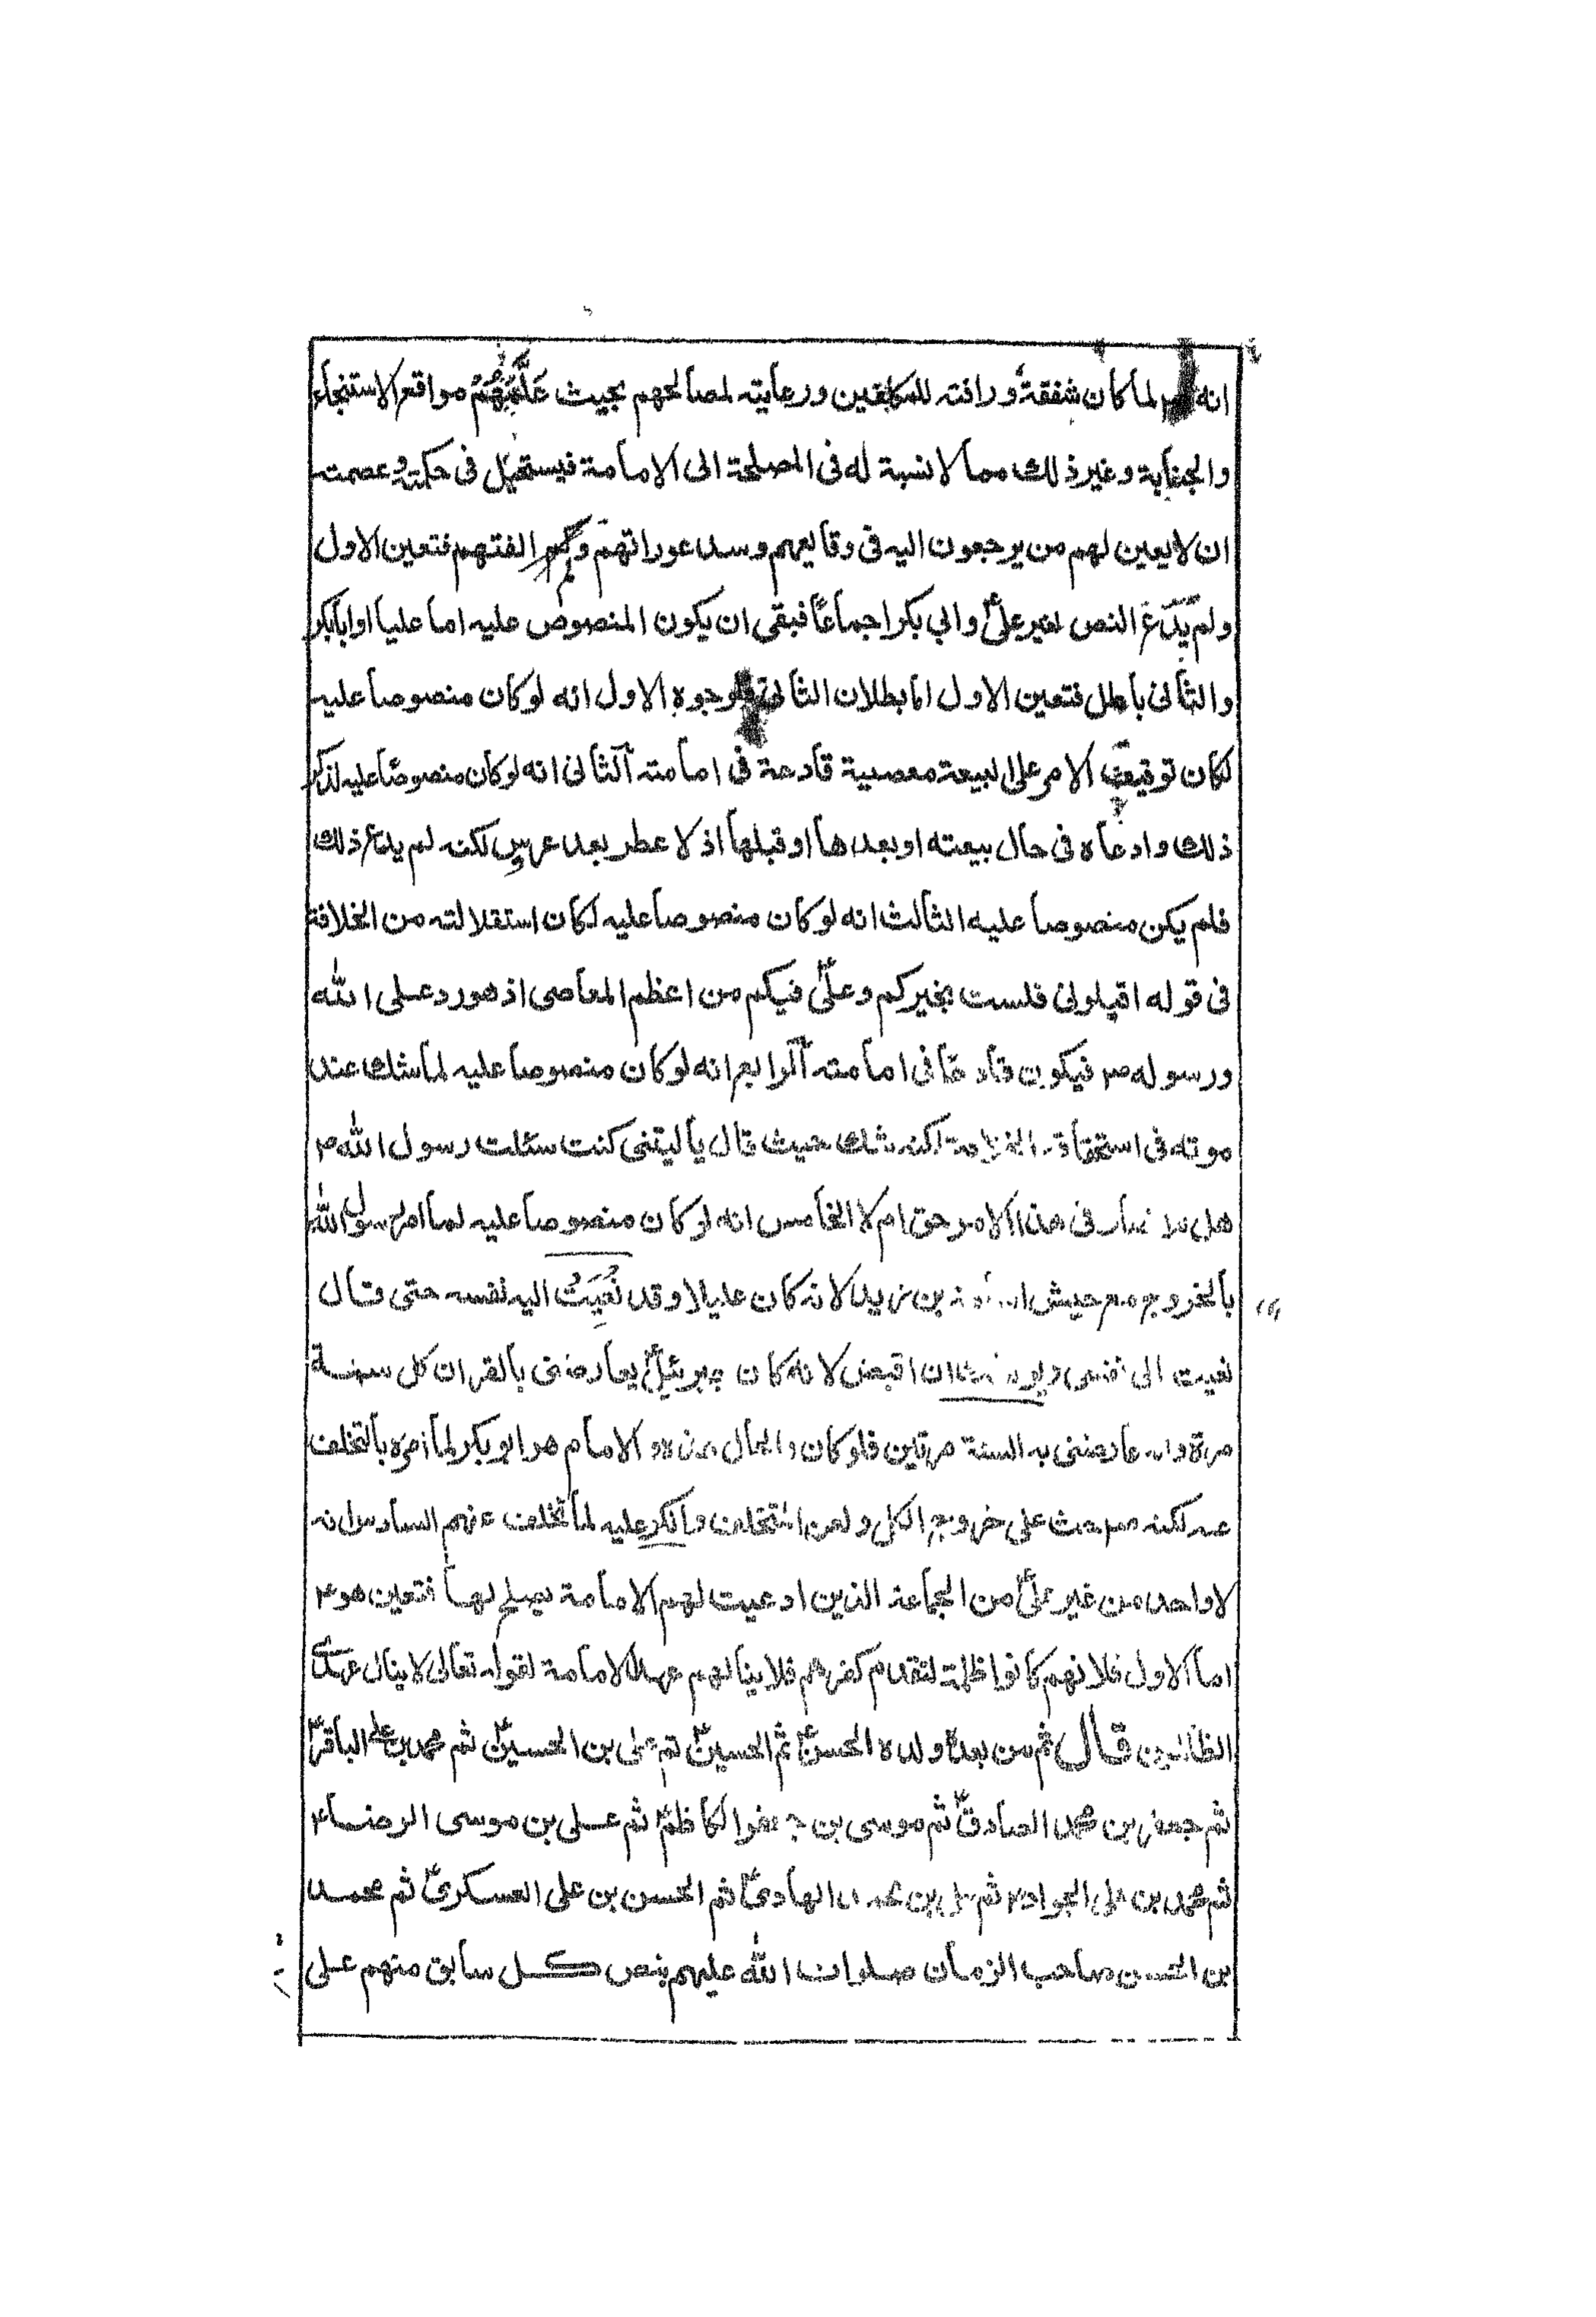 انه لما كان شفقة ورافته للمكلفين ورعايته لمصالحهم بحيث علمهم مواقع الاستنجاء
والجنابة وغير ذلك مما لا نسبة له فى المصلحة الى الامامة فيستحيل فى حكمته وعصمته
ان لا يعين لهم من يرجعون اليه فى وقايعهم وسد عوراتهم الفتهم فتعين الاول
ولم يدّع النص لغير علىؑ وابي بكر اجماعًا فبقى ان يكون المنصوص عليه اما عليا او ابابكر
والثانى باطل فتعين الاول اما بطلان الثانى فلوجوه الاول انه لو كان منصوصا عليه
لكان توقيف الامر على البيعة معصية قادحة فى امامته آلثانى انه لو كان منصوصًا عليه لذكر
ذلك وادعاه فى حال بيعته او بعدها او قبلها اذ لا عطر بعد عرس لكنه لم يدع ذلك
فلم يكن منصوصا عليه الثالث انه لو كان منصوصا عليه لكان استقلالته من الخلافة
فى قوله اقيلونى فلست بخيركم وعلىّ فيكم من اعظم المعاصى اذ هو رد على الله
ورسوله ص فيكون قادحًا فى امامته آلرابع انه لو كان منصوصا عليه لما شك عند
موته فى استحقاقه لكنه شك حيث قال ياليتنى كنت سئلت رسول الله ص
هل للانصار فى هذا الامر حق ام لا الخامس انه لو كان منصوصا عليه لما امره رسول الله
بالخروج مع جيش اسامة بن زيد لانه كان عليلا وقد نُعِيَتْ اليه نفسه حتى قال
نعيت الى نفسى ويوشك ان اقبض لانه كان جبرئيلؑ يعارضنى بالقران كل سنة
مرة وانه عارضنى به السنة مرتين فلو كان والحال هذه الامام هو ابو بكر لما امره بالتخلف
عنه لكنه ص حث على خروج الكل ولعن المتخلف وانكر عليه لما تخلف عنهم السادس انه
لا واحد من غير علىؑ من الجماعة الذين ادعيت لهم الامامة يصلح لها فتعين هوع
اما الاول فلانهم كانوا ظلمة لتقدم كفرهم فلا ينالهم عهد الامامة لقوله تعالى لا ينال عهدى
الظالمين قال ثم من بعده ولده الحسنؑ ثم الحسينؑ ثم على بن الحسينؑ ثم محمد بن على الباقرؑ
ثم جعفر بن محمد الصادقؑ ثم موسى بن جعفر الكاظمؑ ثم على بن موسى الرضاع
ثم محمد بن على الجوادع ثم على بن محمد الهادىؑ ثم الحسن بن على العسكرىؑ ثم محمد
بن الحسن صاحب الزمان صلوات الله عليهم بنص كل سابق منهم على